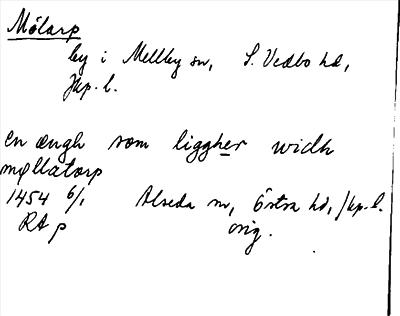 Mölarp
by i Mellby sn, S. Vedbo hd,
Jkp. l.
en ængh som liggher widh
møllatorp
1454 6/1 Alseda sn, Östra hd, Jkp. l.
RA p orig.